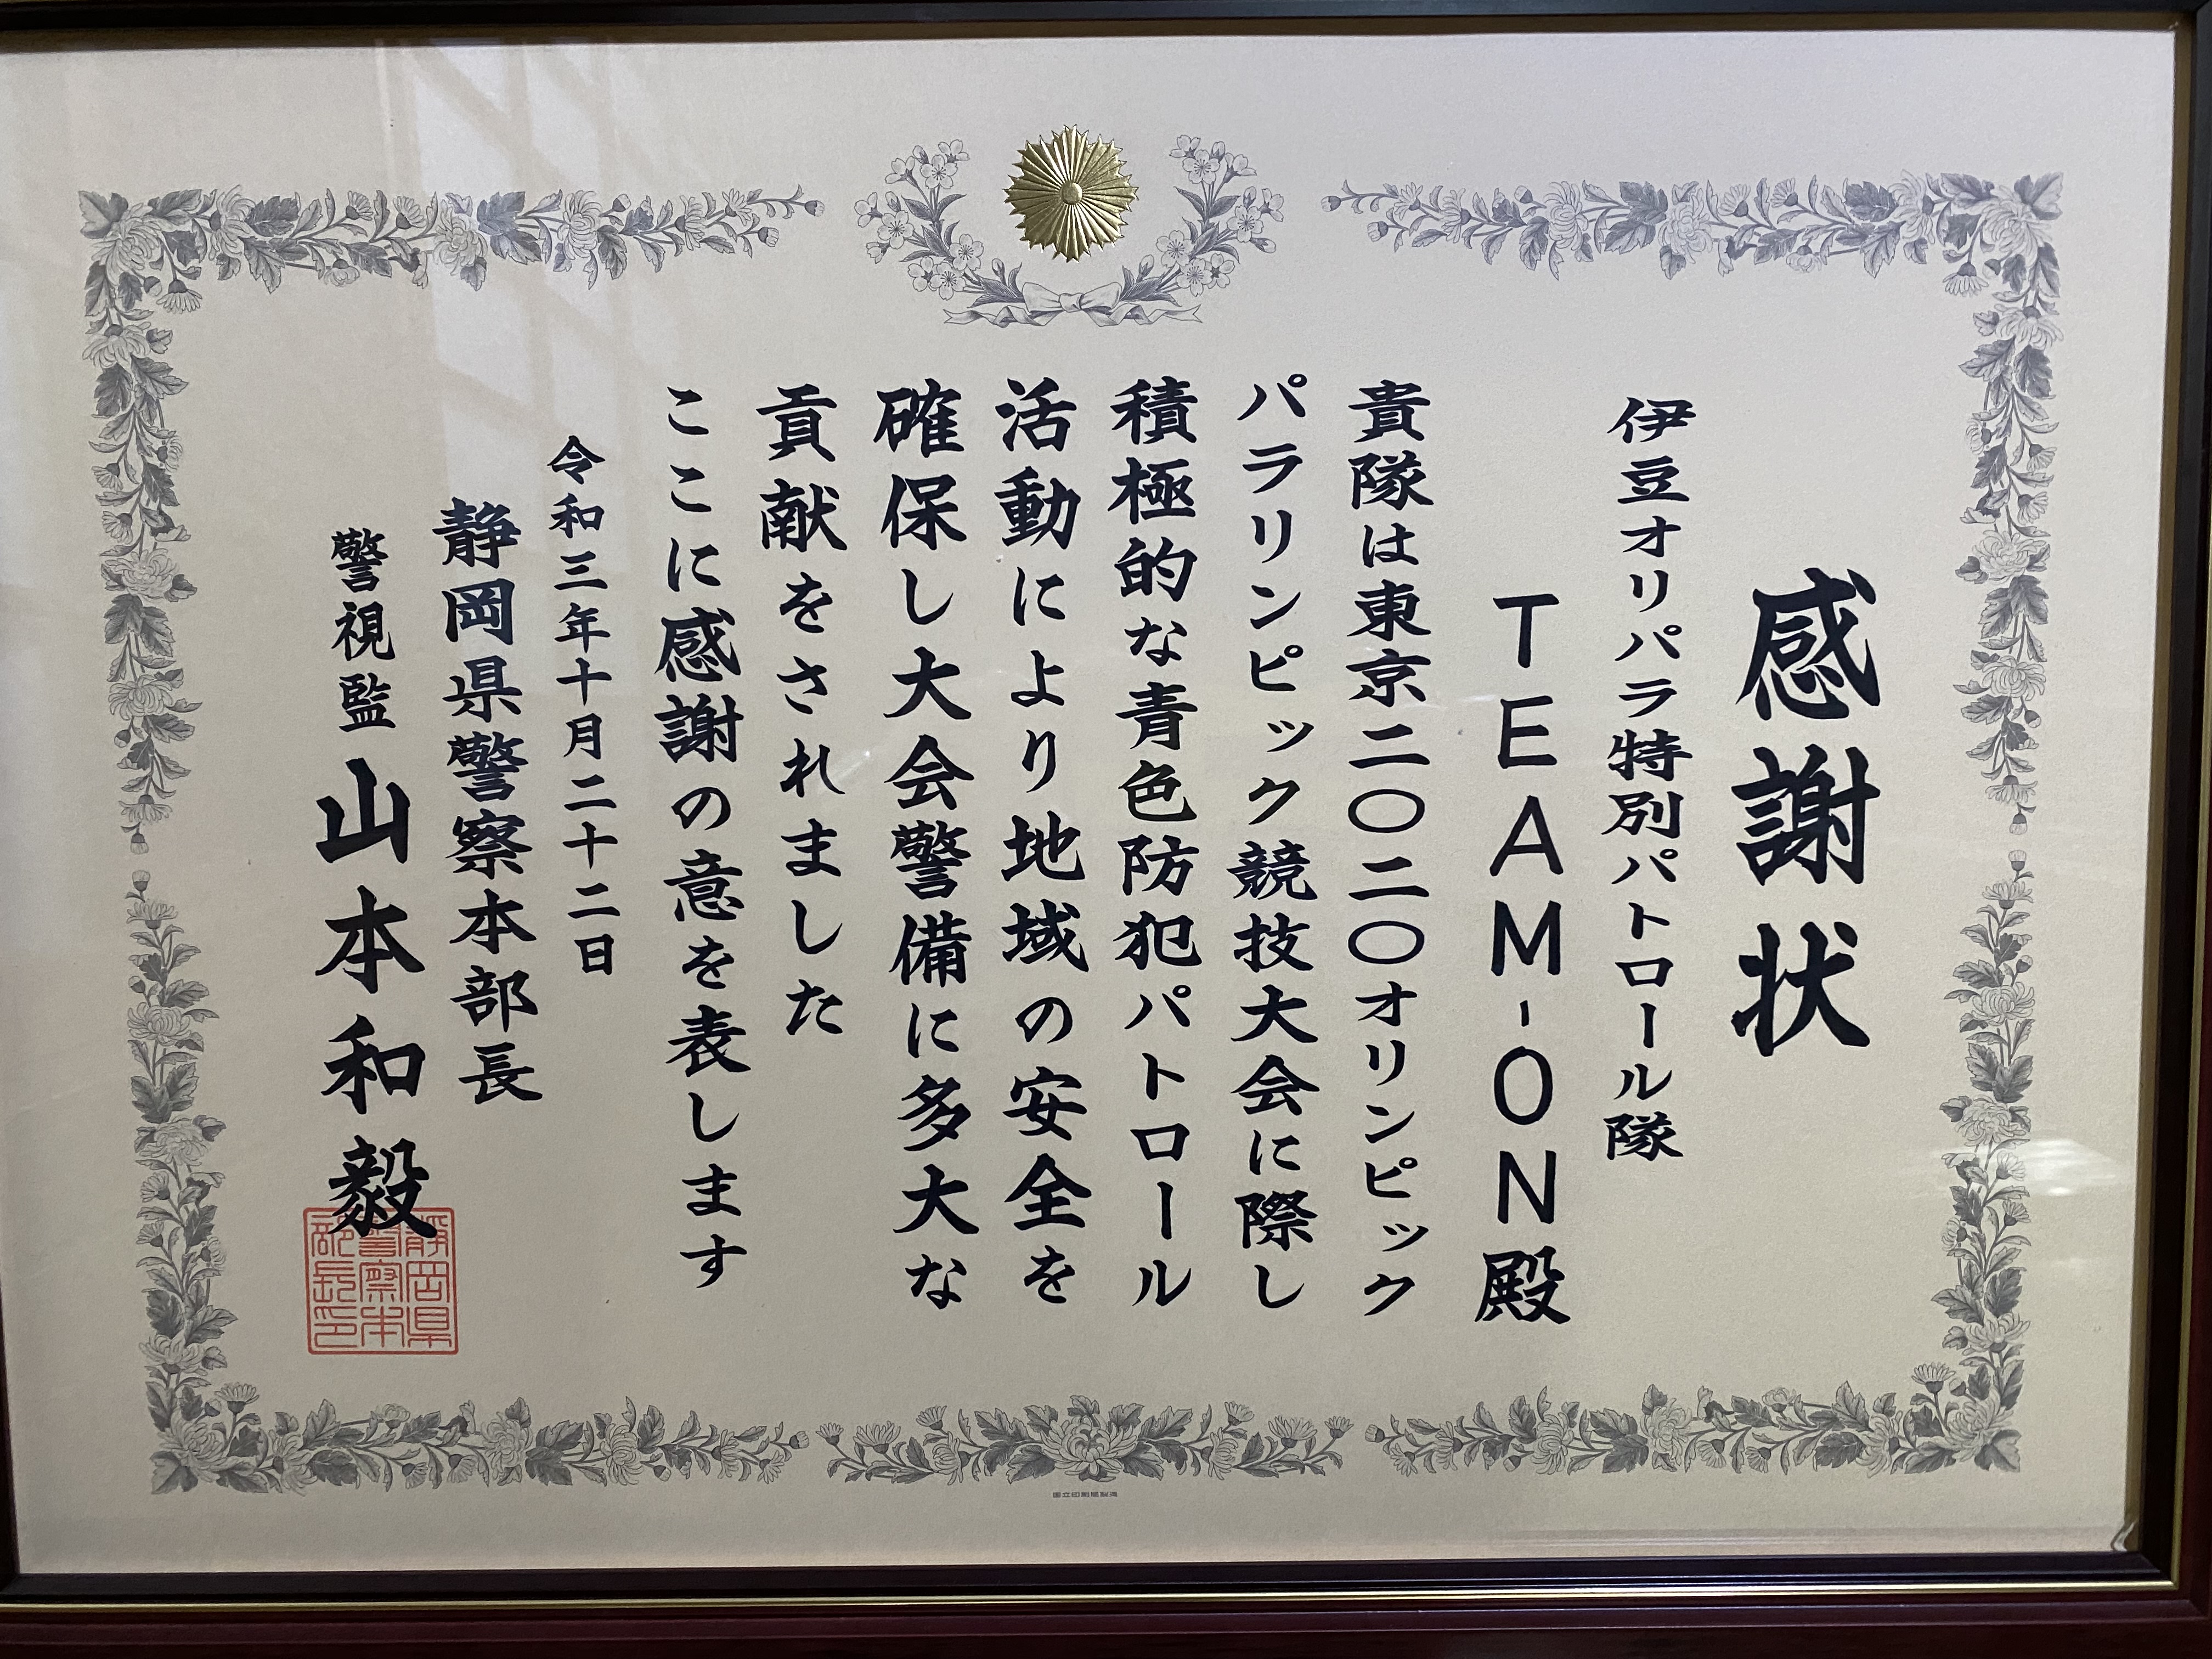 感謝状
伊豆オリパラ特別パトロール隊
TEAM-ON殿
貴隊は東京二〇二〇オリンピック
パラリンピック競技大会に際し
積極的な青色防犯パトロール
活動により地域の安全を
確保し大会警備に多大な
貢献をされました
ここに感謝の意を表します
令和三年十月二十二日
静岡県警察本部長
警視監 山本和毅
静岡県
警察本
部長印
国立印刷局製造